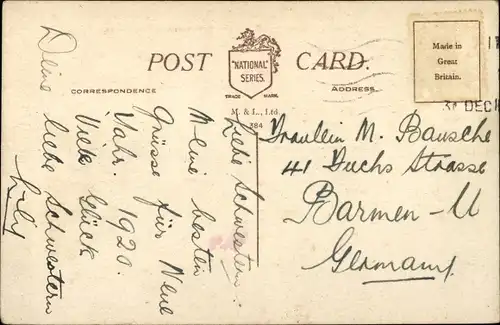 POST CARD.
"NATIONAL"
SERIES.
TRADE MARK.
CORRESPONDENCE
ADDRESS
M. & L., Ltd.
384
Made in
Great
Britain.
DEC
Liebe Schwester:
Meine besten
Grüsse für Neue
Yahr. 1920.
Viele Glück
Deine liebe Schwestern
Lily
Fraulein M. Bausche
41 Fuchs Straasse
Barmen-U
Germany